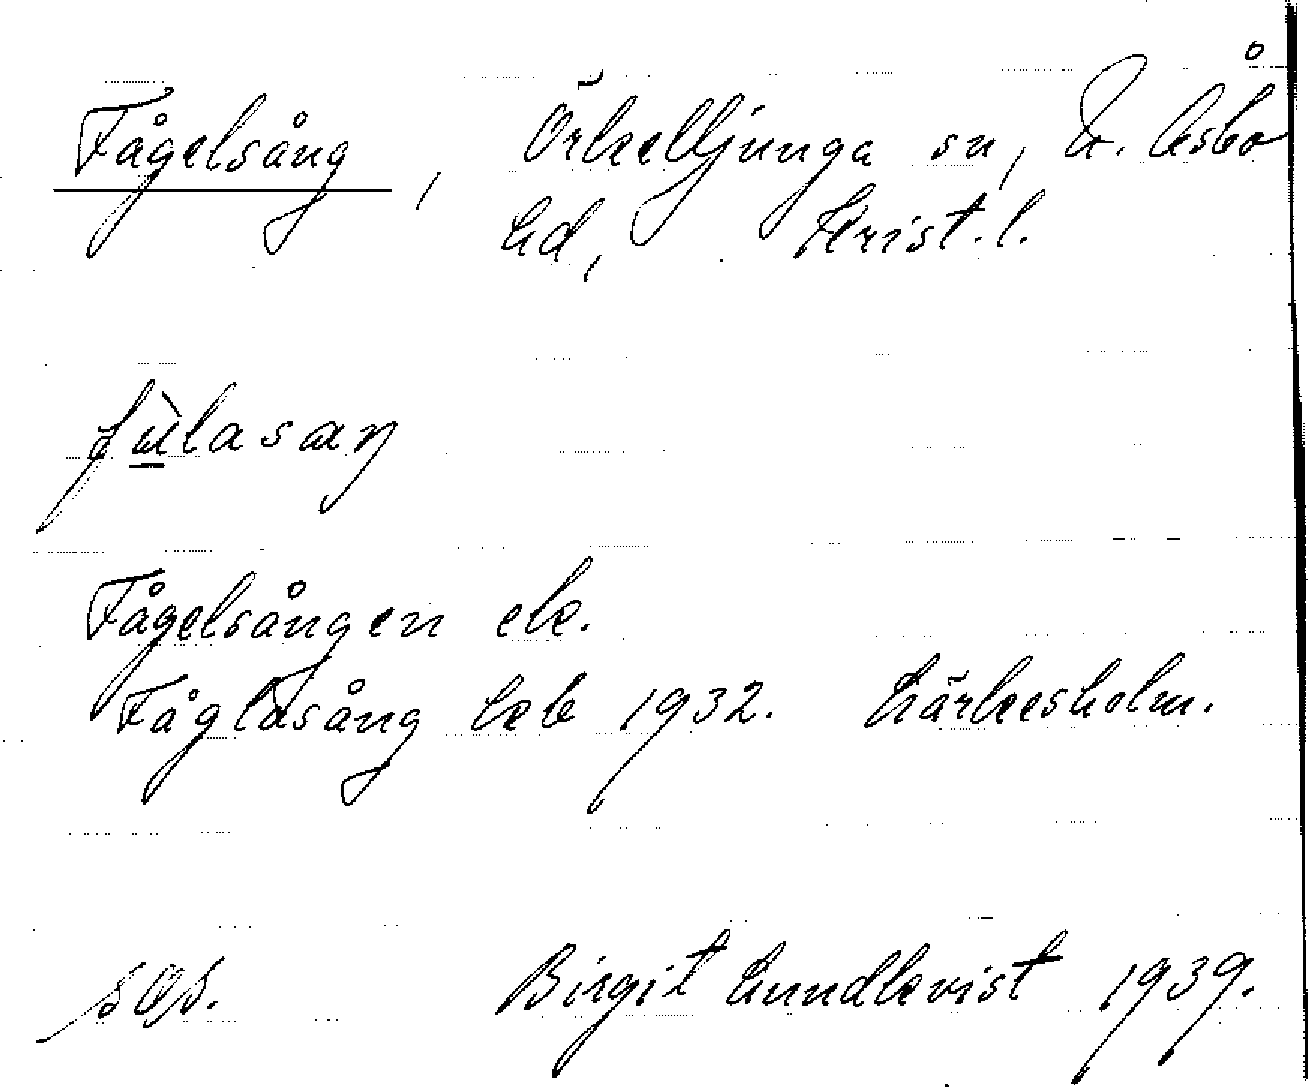 Fågelsång, Örkelljunga sn, N. Åsbo
hd, Krist. l.
fùlasaŋ
Fågelsången ek.
Fåglasång kb 1932. Lärkesholm.
Birgit Lundkvist 1939.